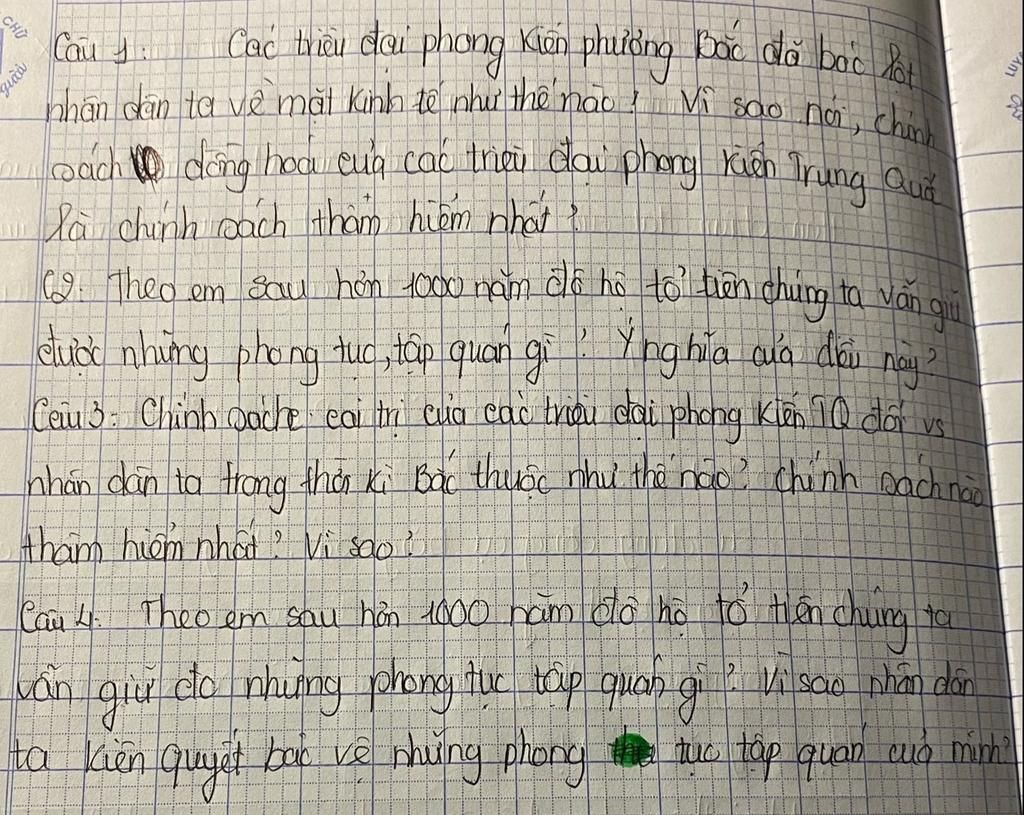 CHỮ
Câu 1: Các triều đại phong kiến phương Bắc đã bóc lột
nhân dân ta về mặt kinh tế như thế nào? Vì sao nói, chính
sách đồng hoá của các triều đại phong kiến Trung Quố
là chính sách thâm hiểm nhất?
C2: Theo em sau hơn 1000 năm đô hộ tổ tiên chúng ta vẫn giữ
được những phong tục, tập quán gì? Ý nghĩa của điều này?
Câu 3: Chính sách cai trị của các triều đại phong kiến TQ đối vs
nhân dân ta trong thời kì Bắc thuộc như thế nào? Chính sách nào
thâm hiểm nhất? Vì sao?
Câu 4: Theo em sau hơn 1000 năm đô hộ tổ tiên chúng ta
vẫn giữ đc những phong tục tập quán gì? Vì sao nhân dân
ta kiên quyết bảo vệ những phong tục tập quán của mình?